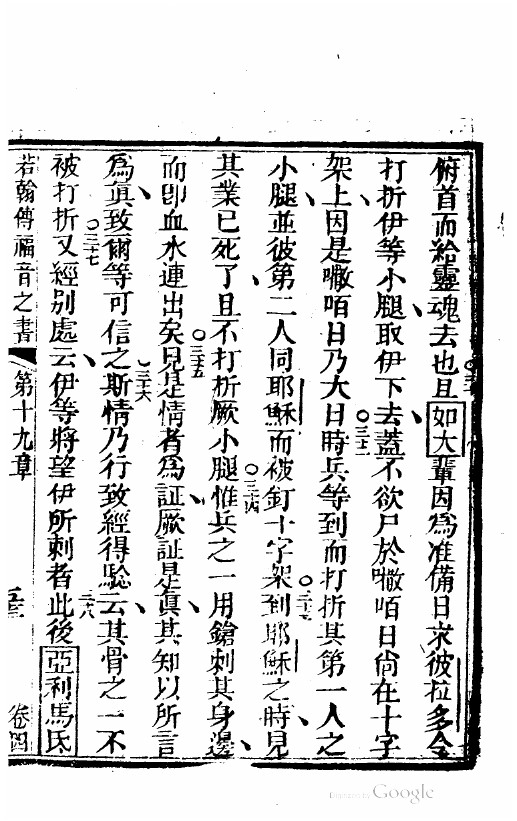 俯首而給靈魂去也且如大輩因爲准備日求彼拉多令
打折伊等小腿取伊下去蓋不欲尸於嘥咟日尙在十字
架上因是嘥咟日乃大日時兵等到而打折其第一人之
小腿並彼第二人同耶穌而被釘十字架到耶穌之時見
其業已死了且不打折厥小腿惟兵之一用鎗刺其身邊
而卽血水連出矣見是情者爲証厥証是眞其知以所言
爲眞致爾等可信之斯情乃行致經得騐云其骨之一不
被打折又經別處云伊等將望伊所刺者此後亞利馬氏
若翰傳福音之書 第十九章 卷四
Google